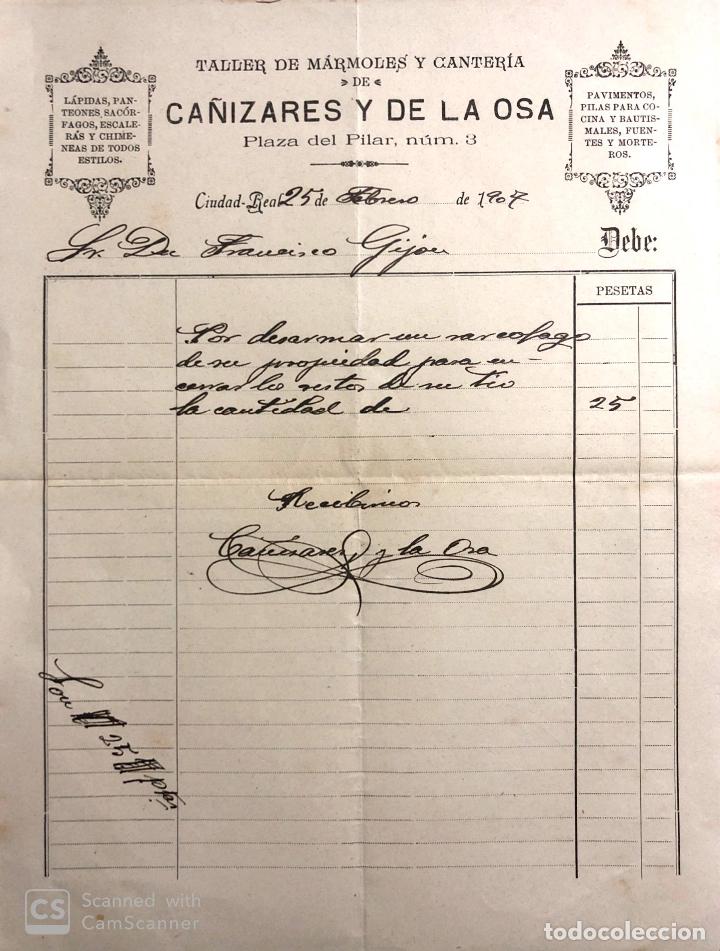 TALLER DE MÁRMOLES Y CANTERÍA
DE
CAÑIZARES Y DE LA OSA
Plaza del Pilar, núm. 3
LÁPIDAS, PAN-
TEONES, SACÓR-
FAGOS, ESCALE-
RAS Y CHIME-
NEAS DE TODOS
ESTILOS.
PAVIMENTOS,
PILAS PARA CO-
CINA Y BAUTIS-
MALES, FUEN-
TES Y MORTE-
ROS.
Ciudad-Real 25 de Febrero de 1907
Sr. Dn Francisco Gijon Debe:
PESETAS
Por desarmar un sarcofago
de su propiedad para en-
cerrar lo restos de su tio
la cantidad de 25
Recibimos
Cañizares y la Osa
Son 25 ptas
CS Scanned with
CamScanner
todocoleccion